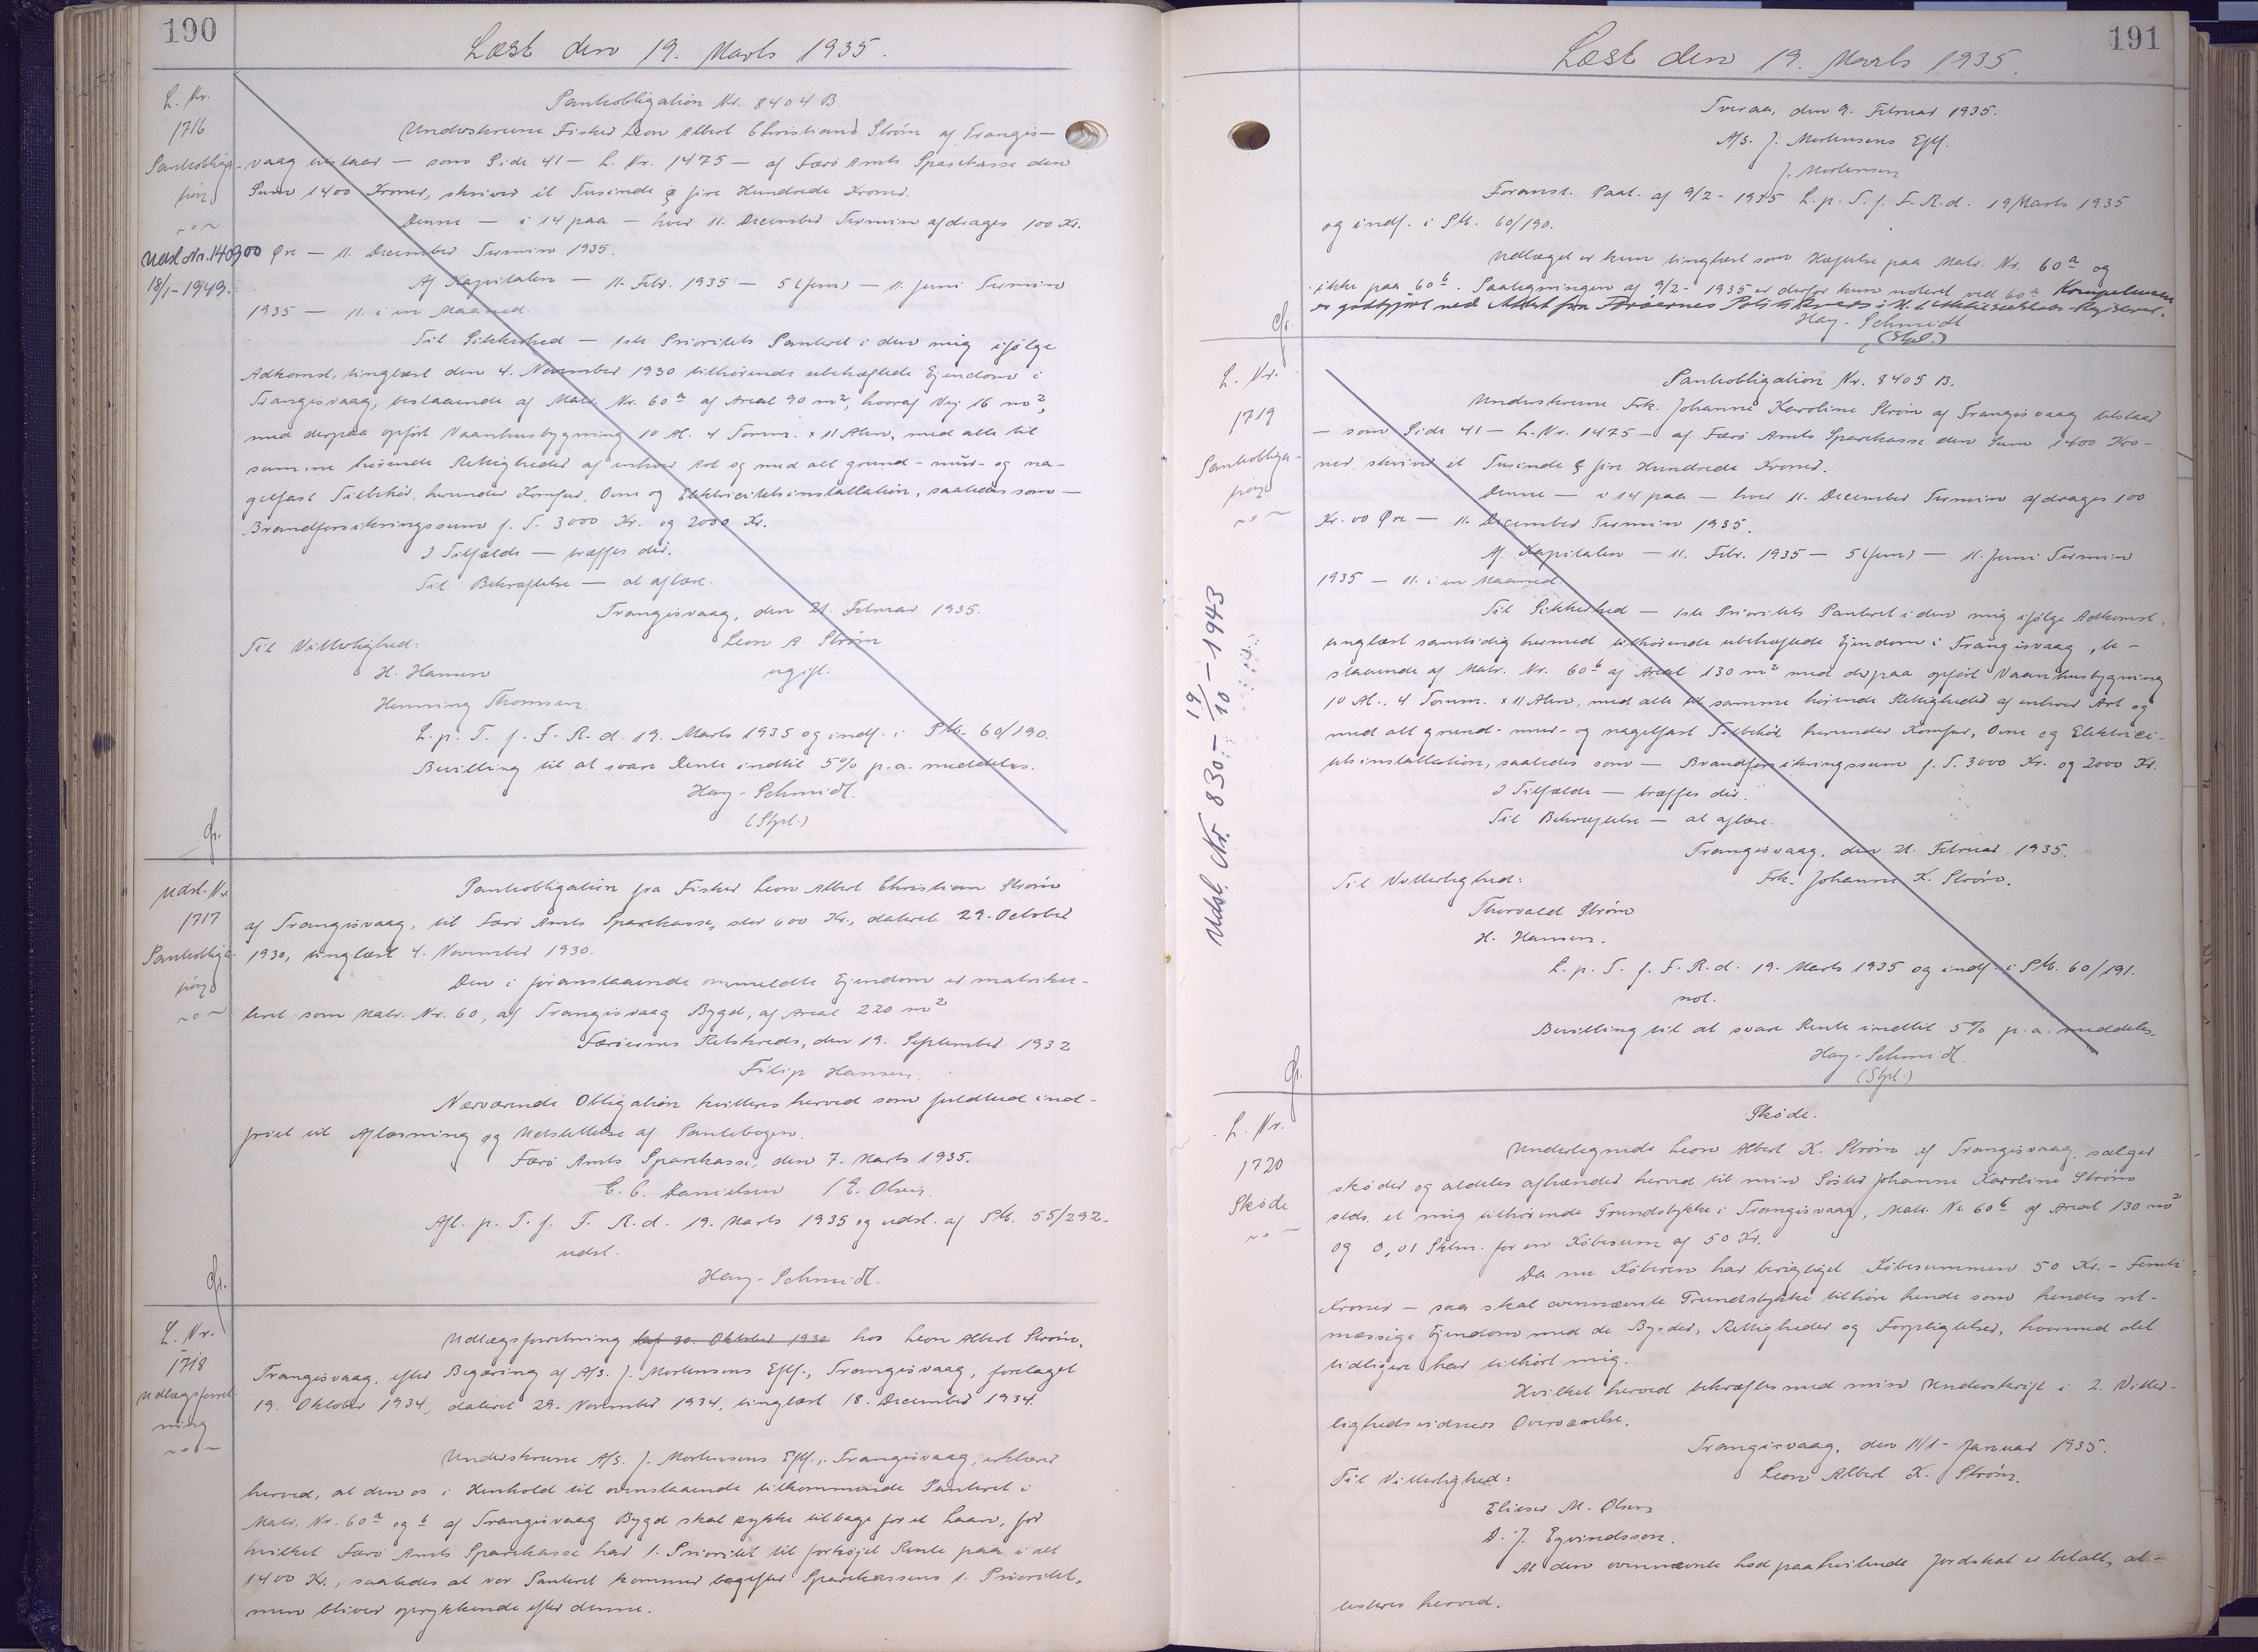 190
Læst den 19. Marts 1935.
L. Nr.
1716
Panteobliga-
tion
Pantobligation Nr. 8404 B.
Underskrevne Fisker Leon Albert Christiand Strøm af Trangis-
vaag udstaar — som Side 41 — L. Nr. 1475 — af Færø Amts Sparekasse den
Sum 1400 Kroner, skriver et Tusinde & fire Hundrede Kroner.
Denne — i 14 paa — hver 11. December Termin afdrages 100 Kr.
Udsl. Nr. 140
18/1-1949.
00 Øre — 11. December Termin 1935.
Af Kapitalen — 11. Febr. 1935 — 5 (fem) — 11. Juni Termin
1935 — 11. i en Maaned.
Til Sikkerhed — 1ste Prioritets Panteret i den mig ifølge
Adkomst, tinglæst den 4. November 1930 tilhørende ubehæftede Ejendom i
Trangisvaag, bestaaende af Matr. Nr. 60a af Areal 90 m2, hvoraf Vej 16 m2,
med derpaa opført Vaanhusbygning 10 Al. 4 Tomm. x 11 Alen, med alle til
samme hørende Rettigheder af enhver Art og med alt grund- mur- og na-
gelfast Tilbehør, herunder Komfur, Ovne og Elektricitetsinstallation, saaledes som —
Brandforsikringssum f. T. 3000 Kr. og 2000 Kr.
I Tilfælde — træffes der.
Til Bekræftelse — at aflæse.
Trangisvaag, den 21. Februar 1935.
Til Vitterlighed:
Leon A. Strøm
H. Hansen
ugift.
Henning Thomsen.
L. p. T. f. F. R. d. 19. Marts 1935 og indf. i Ptb. 60/190.
Bevilling til at svare Rente indtil 5% p.a. meddeles.
Hay-Schmidt.
(Stpl.)
Udsl. Nr.
1717
Pantobliga-
tion
Pantobligation fra Fisker Leon Albert Christian Strøm
af Trangisvaag, til Færø Amts Sparekasse, stor 600 Kr., dateret 29. October
1930, tinglæst 4. November 1930.
Den i foranstaaende ommeldte Ejendom er matriku-
leret som Matr. Nr. 60, af Trangisvaag Bygd, af Areal 220 m2
Færøernes Retskreds, den 19. September 1932
Filip Hansen.
Nærværende Obligation kvitteres herved som fuldtud ind-
friet til Aflæsning og Udslettelse af Pantebogen.
Færø Amts Sparekasse, den 7. Marts 1935.
E. C. Danielsen / E. Olsen.
Afl. p. T. f. F. R. d. 19. Marts 1935 og udsl. af Ptb. 55/292.
udsl.
Hay-Schmidt.
L. Nr.
1718
Udlægsforret-
ning
Udlægsforretning af 30. Oktober 1930 hos Leon Albert Strøm,
Trangisvaag, efter Begæring af A/S. J. Mortensens Eftf., Trangisvaag, foretaget
19. Oktober 1934, dateret 29. November 1934, tinglæst 18. December 1934.
Underskrevne A/S. J. Mortensens Eftf., Trangisvaag, erklærer
herved, at den os i Henhold til ovenstaaende tilkommende Panteret i
Matr. Nr. 60a og b af Trangisvaag Bygd skal rykke tilbage for et Laan, for
hvilket Færø Amts Sparekasse har 1. Prioritet til forhøjet Rente paa i alt
1400 Kr., saaledes at vor Panteret kommer bagefter Sparekassens 1. Prioritet,
men bliver oprykkende efter denne.
191
Læst den 19. Marts 1935.
Tveraa, den 9. Februar 1935.
A/S. J. Mortensens Eftf.
J. Mortensen
Foranst. Paat. af 9/2 - 1935 L. p. T. f. F. R. d. 19 Marts 1935
og indf. i Ptb. 60/190.
Udlæget er kun tinglæst som Hæftelse paa Matr. Nr. 60a og
ikke paa 60b. Paategningen af 9/2 - 1935 er derfor kun noteret ved 60a. Kompetencen
er godtgjort ved Attest fra Færøernes Politikreds i H. t. Aktieselskabs-Registeret.
Hay-Schmidt
(Stpl.)
L. Nr.
1719
Pantobliga-
tion
Pantobligation Nr. 8405 B.
Underskrevne Frk. Johanne Karoline Strøm af Trangisvaag udstaar
— som Side 41 — L. Nr. 1475 — af Færø Amts Sparekasse den Sum 1400 Kro-
ner, skriver et Tusinde & fire Hundrede Kroner.
Denne — i 14 paa — hver 11. December Termin afdrages 100
Kr. 00 Øre — 11. December Termin 1935.
Af Kapitalen — 11. Febr. 1935 — 5 (fem) — 11. Juni Termin
1935 — 11. i en Maaned
Til Sikkerhed — 1ste Prioritets Panteret i den mig ifølge Adkomst,
tinglæst samtidig hermed tilhørende ubehæftede Ejendom i Trangisvaag, be-
staaende af Matr. Nr. 60b af Areal 130 m2 med derpaa opført Vaanhusbygning
10 Al. 4 Tomm. x 11 Alen, med alle til samme hørende Rettigheder af enhver Art og
med alt grund- mur- og nagelfast Tilbehør, herunder Komfur, Ovne og Elektrici-
tetsinstallation, saaledes som — Brandforsikringssum f. T. 3000 Kr. og 2000 Kr.
I Tilfælde — træffes der.
Til Bekræftelse — at aflæse.
Trangisvaag, den 21. Februar 1935.
Til Vitterlighed:
Frk. Johanne K. Strøm.
Thorvald Strøm
H. Hansen.
L. p. T. f. F. R. d. 19. Marts 1935 og indf. i Ptb. 60/191.
not.
Bevilling til at svare Rente indtil 5% p.a. meddeles.
Hay-Schmidt.
(Stpl.)
Udsl. Nr. 830 - 19/10 - 1943
L. Nr.
1720
Skøde
Skøde.
Undertegnede Leon Albert K. Strøm af Trangisvaag, sælger
skøder og aldeles afhænder herved til min Søster Johanne Karoline Strøm
stds. et mig tilhørende Grundstykke i Trangisvaag, Matr. Nr. 60b af Areal 130 m2
og 0,01 Sklm. for en Købesum af 50 Kr.
Da nu Køberen har berigtiget Købesummen 50 Kr. - Femti
Kroner — saa skal ovennævnte Grundstykke tilhøre hende som hendes ret-
mæssige Ejendom med de Byrder, Rettigheder og Forpligtelser, hvormed det
tidligere har tilhørt mig.
Hvilket herved bekræftes med min Underskrift i 2. Vitter-
lighedsvidners Overværelse.
Trangisvaag, den 11/1 - Januar 1935.
Til Vitterlighed:
Leon Albert K. Strøm.
Elieser M. Olsen.
D. J. Eyvindsson.
At den ovennævnte Lod paahvilende Jordskat er betalt, at-
testeres herved.